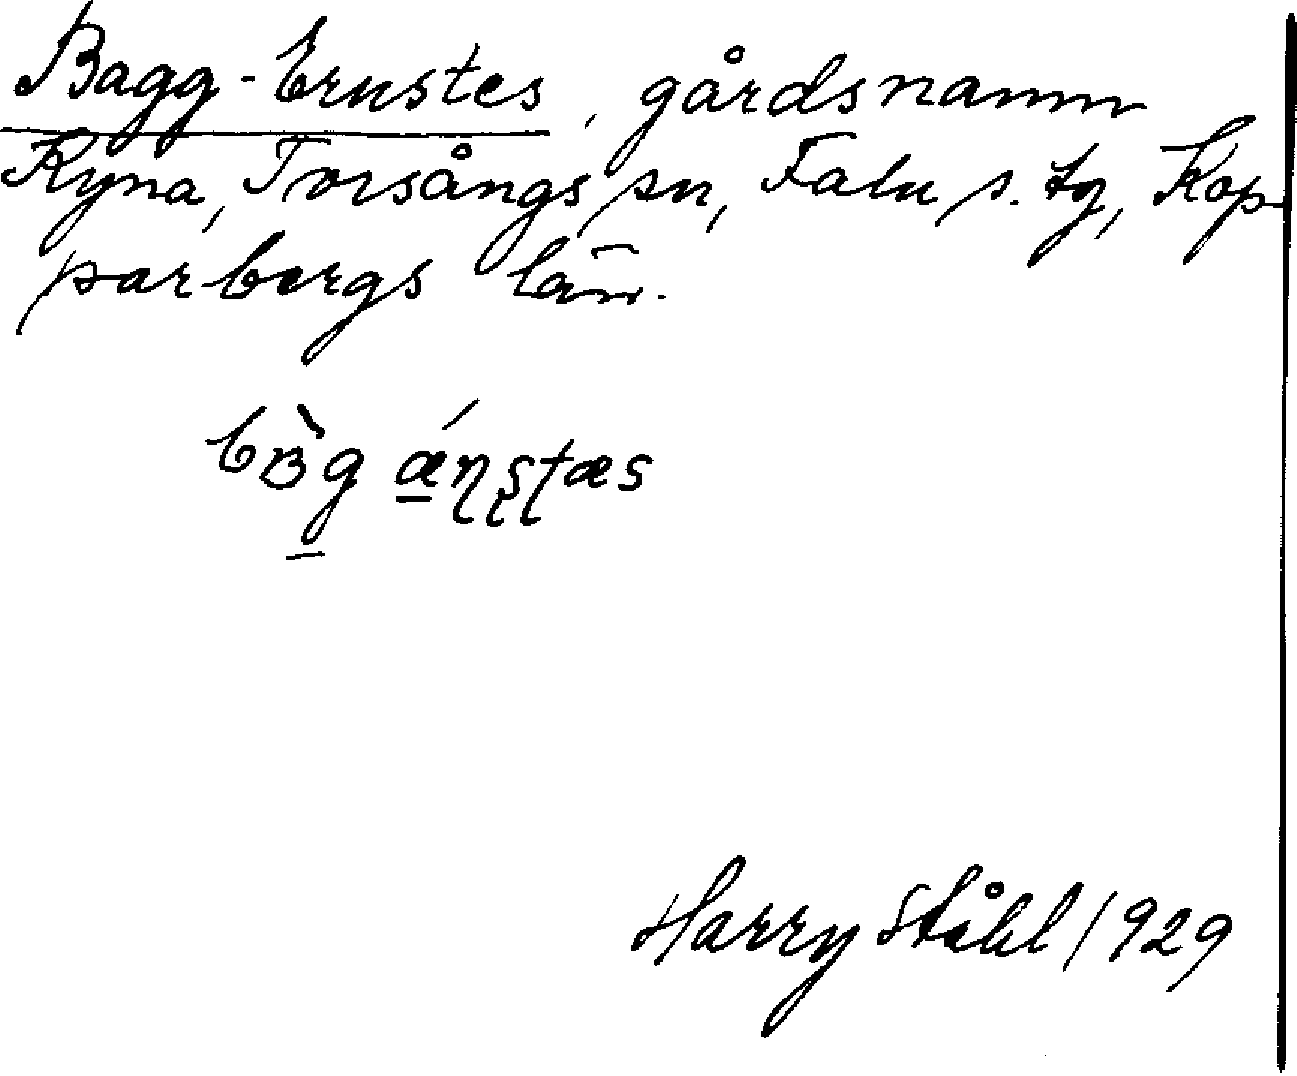 Bagg-Ernstes, gårdsnamn
Kyna, Torsångs sn, Falu s. tg, Kop-
parbergs län.
bʙ̀g ǽɳʂʈæs
Harry Ståhl 1929